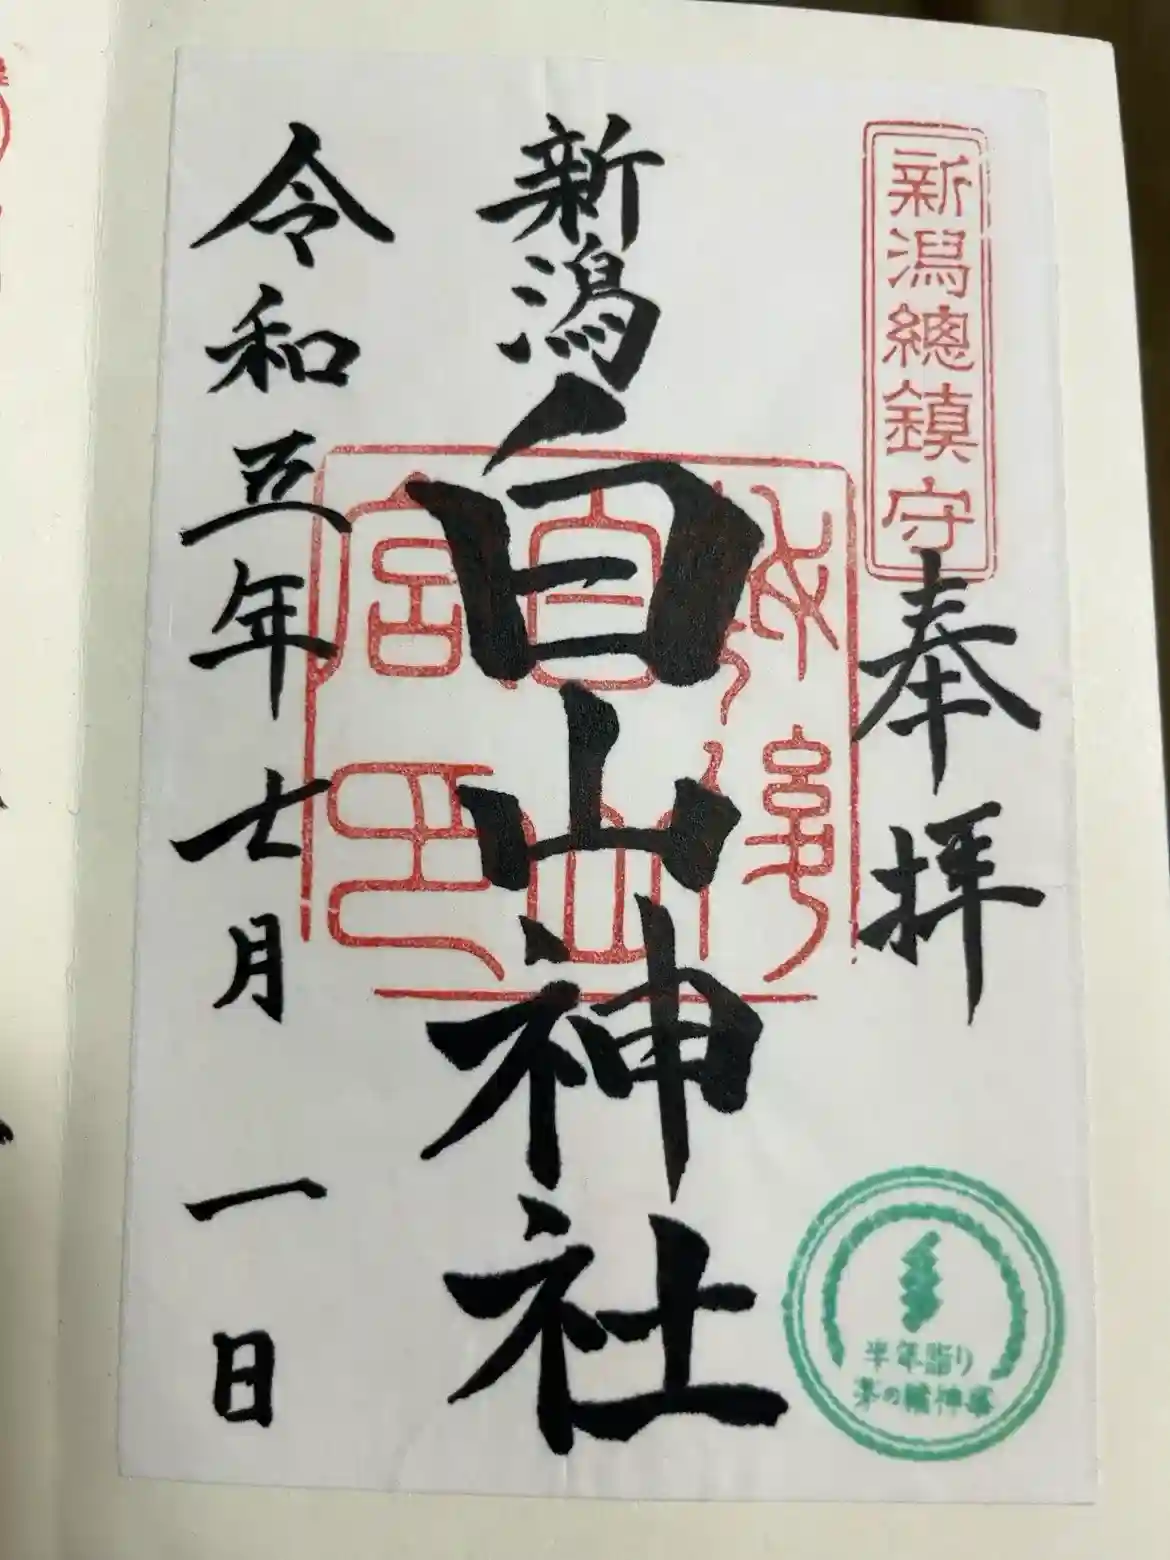 新潟總鎮守
奉拝
新潟白山神社
令和五年七月一日
半年詣り
茅の輪神事